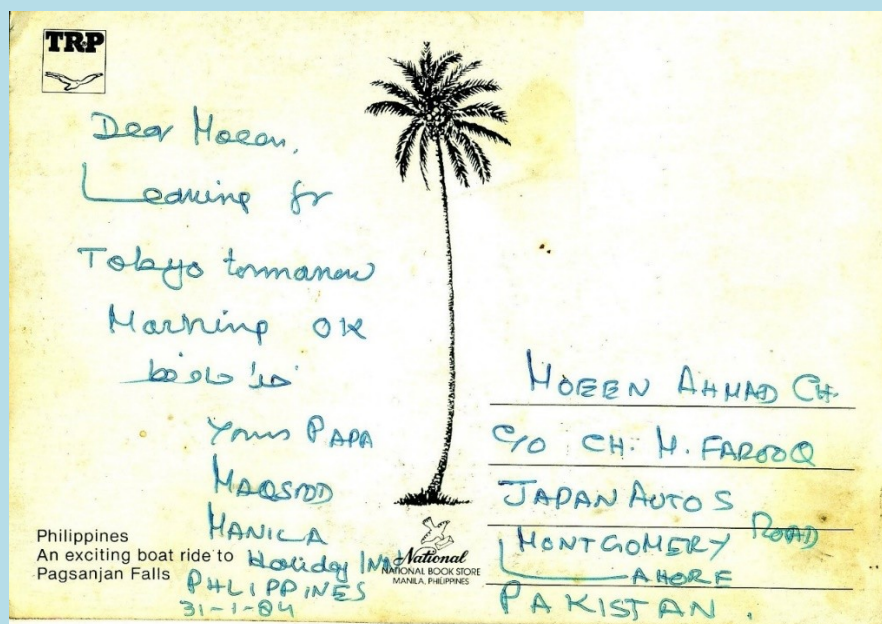 TRP
Dear Moeen,
Leaving for
Tokyo tommorow
Morning OK
خدا حافظ
Yours PAPA
MAQSOOD
MANILA
Holiday Inn
PHLIPPINES
31-1-84
Philippines
An exciting boat ride to
Pagsanjan Falls
National
NATIONAL BOOK STORE
MANILA, PHILIPPINES
MOEEN AHMAD CH.
C/O CH. M. FAROOQ
JAPAN AUTOS
MONTGOMERY ROAD
LAHORE
PAKISTAN.